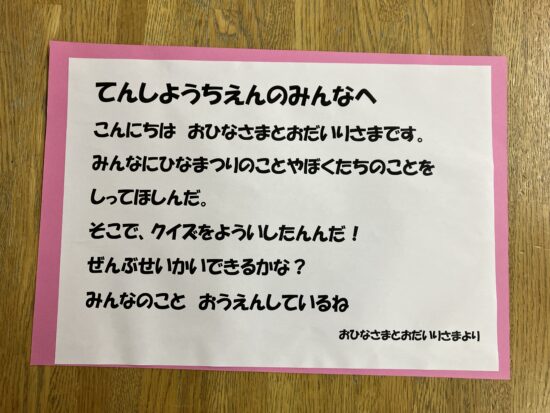 てんしようちえんのみんなへ
こんにちは　おひなさまとおだいりさまです。
みんなにひなまつりのことやぼくたちのことを
しってほしんだ。
そこで、クイズをよういしたんんだ！
ぜんぶせいかいできるかな？
みんなのこと　おうえんしているね
おひなさまとおだいりさまより